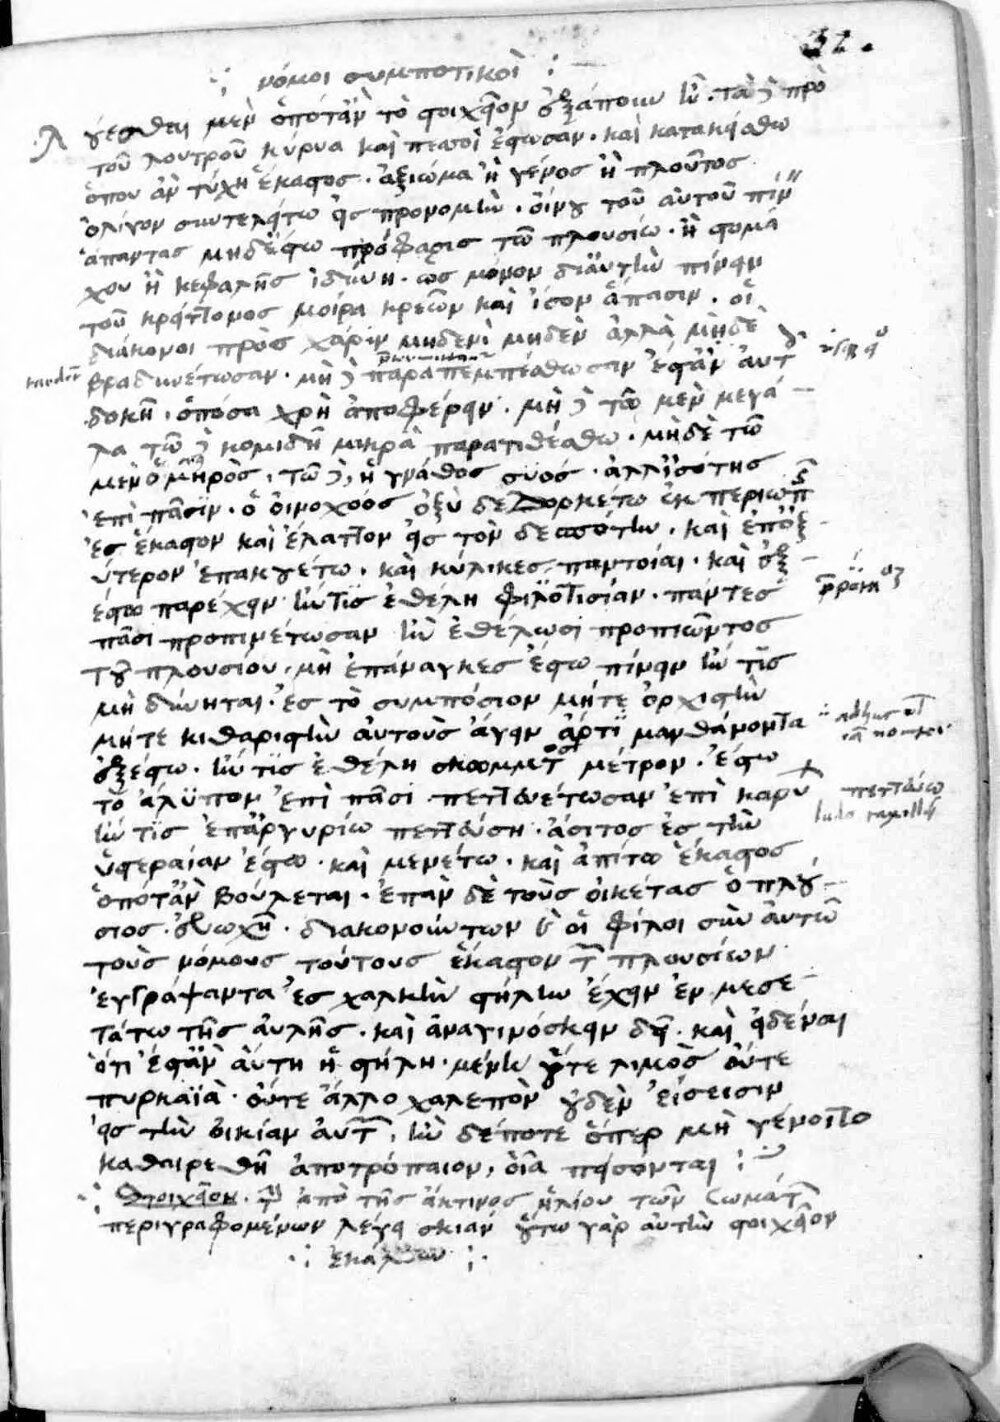 32.
νόμοι συμποτικοὶ
λούεσθαι μὲν ὁπόταν τὸ στοιχεῖον ἑξάπουν ᾖ. τὰ δὲ πρὸ
τοῦ λουτροῦ κάρυα καὶ πεσσοὶ ἔστωσαν. καὶ κατακείσθω
ὅπου ἂν τύχῃ ἕκαστος. ἀξίωμα ἢ γένος ἢ πλοῦτος
ὀλίγον συντελείτω ἐς προνομὴν. οἴνου τοῦ αὐτοῦ πίνειν
ἅπαντας μηδ' ἔστω πρόφασις τῶ πλουσίω. ἢ στομά
χου ἢ κεφαλῆς ὀδύνη. ὡς μόνον δι' αὐτὴν πίνειν
τοῦ κρείττονος μοίρα κρεῶν καὶ ἴσον ἅπασιν. οἱ
διάκονοι πρὸς χάριν μηδενὶ μηδὲν ἀλλὰ μηδὲ
βραδυνέτωσαν. μὴ δὲ παραπεμπέσθωσαν ἔστ' ἂν αὐτοῖς
δοκῇ. ὁπόσα χρὴ ἀποφέρειν. μὴ δὲ τῶ μὲν μεγά
λα τῶ δὲ κομιδῇ μικρὰ παρατιθέσθω. μηδὲ τῶ
μὲν ὁ μηρὸς. τῶ δὲ, ἡ γνάθος συός. ἀλλ' ἰσότης
ἐπὶ πᾶσιν. ὁ οἰνοχόος ὀξὺ δεδορκέτω ἐκ περιωπῆς
ἐς ἕκαστον καὶ ἔλαττον ἐς τὸν δεσπότην. καὶ ἐπ' ὀξ
ύτερον ἐπακουέτω. καὶ κύλικες παντοίαι. καὶ ἐξ
έστω παρέχειν ἤν τις ἐθέλη φιλοτησίαν. πάντες
πᾶσι προπινέτωσαν ἢν ἐθέλωσι προπιῶντος
τοῦ πλουσίου. μὴ ἐπάναγκες ἔστω πίνειν ἤν τις
μὴ δύνηται. ἐς τὸ συμπόσιον μήτε ὀρχηστὴν
μήτε κιθαριστὴν αὐτοὺς ἄγειν ἄρτι μανθάνοντα
ἐξέστω. ἤν τις ἐθέλη σκώμματος μέτρον. ἔστω
τὸ ἄλυπον ἐπὶ πᾶσι πεττευέτωσαν ἐπὶ καρύ
ἤν τις ἐπ' ἀργυρίω πεττεύση. ἄσιτος ἐς τὴν
ὑστεραίαν ἔστω. καὶ μενέτω. καὶ ἀπίτω ἕκαστος
ὁπόταν βούλεται. ἐπὰν δὲ τοὺς οἰκέτας ὁ πλού
σιος εὐωχῇ. διακονούντων καὶ οἱ φίλοι σὺν αὐτῶ
τοὺς νόμους τούτους ἕκαστον τῶν πλουσίων
ἐγγράψαντα ἐς χαλκὴν στήλην ἔχειν ἐν μεσε
τάτω τῆς αὐλῆς. καὶ ἀναγινόσκειν δεῖ. καὶ εἰδέναι
ὅτι ἔστ' ἂν αὕτη ἡ στήλη μένη οὔτε λιμὸς οὔτε
πυρκαϊὰ. οὔτε ἄλλο χαλεπὸν οὐδὲν εἴσεισιν
ἐς τὴν οἰκίαν αὐτοῖς. ἢν δέποτε ὅπερ μὴ γένοιτο
καθαιρεθῇ ἀποτρόπαιον, οἷα πείσονται
Στοιχεῖον. τὴν ἀπὸ τῆς ἀκτινος ἡλίου τῶν σωμάτων
περιγραφομένων λέγει σκιάν οὕτω γὰρ αὐτὴν στοιχεῖον
ἐκάλουν
πεττεύω